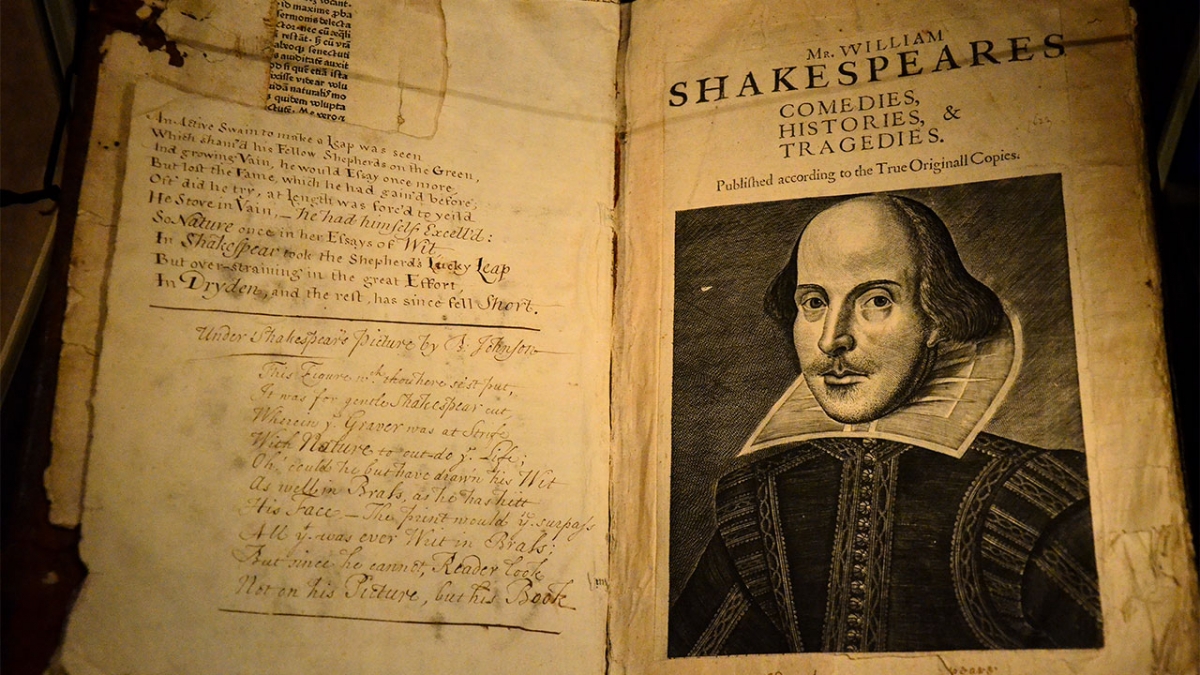 id maxime
sermonis delecta
senectuti
auiditate auxit
videar volu
quidem volupta
An Active Swain to make a Leap was seen
Which sham'd his Fellow Shepherds on the Green,
And growing Vain, he would Essay once more,
But lost the Fame, which he had gain'd before;
Oft' did he try, at Length was forc'd to yeild
He Strove in Vain, – he had himself Excell'd:
So Nature once in her Essays of Wit,
In Shakespear took the Shepherd's Lucky Leap
But over-straining in the great Effort,
In Dryden, and the rest, has since fell Short.
Under Shakespear's picture by Johnson
This Figure wch. thou here se'st put,
It was for gentle Shakespear cut,
Wherein ye Graver was at Strife,
With Nature to out-do ye. Life;
Oh, could he but have drawn his Wit
As well in Brass, as he has hitt
His Face – The print would yn. surpass
All yt. was ever Writ in Brass;
But since he cannot, Reader look
Not on his Picture, but his Book
Mr. WILLIAM
SHAKESPEARES
COMEDIES,
HISTORIES, &
TRAGEDIES.
Published according to the True Originall Copies.